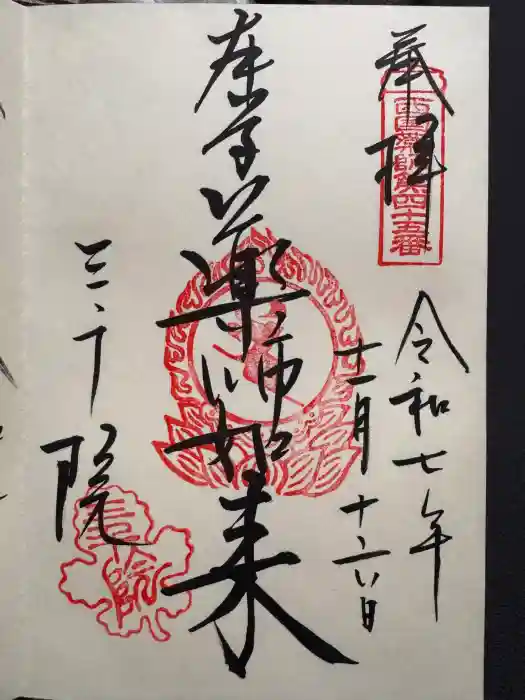 奉拝
西国薬師第四十五番
令和七年
十一月十六日
薬師如来
三千院